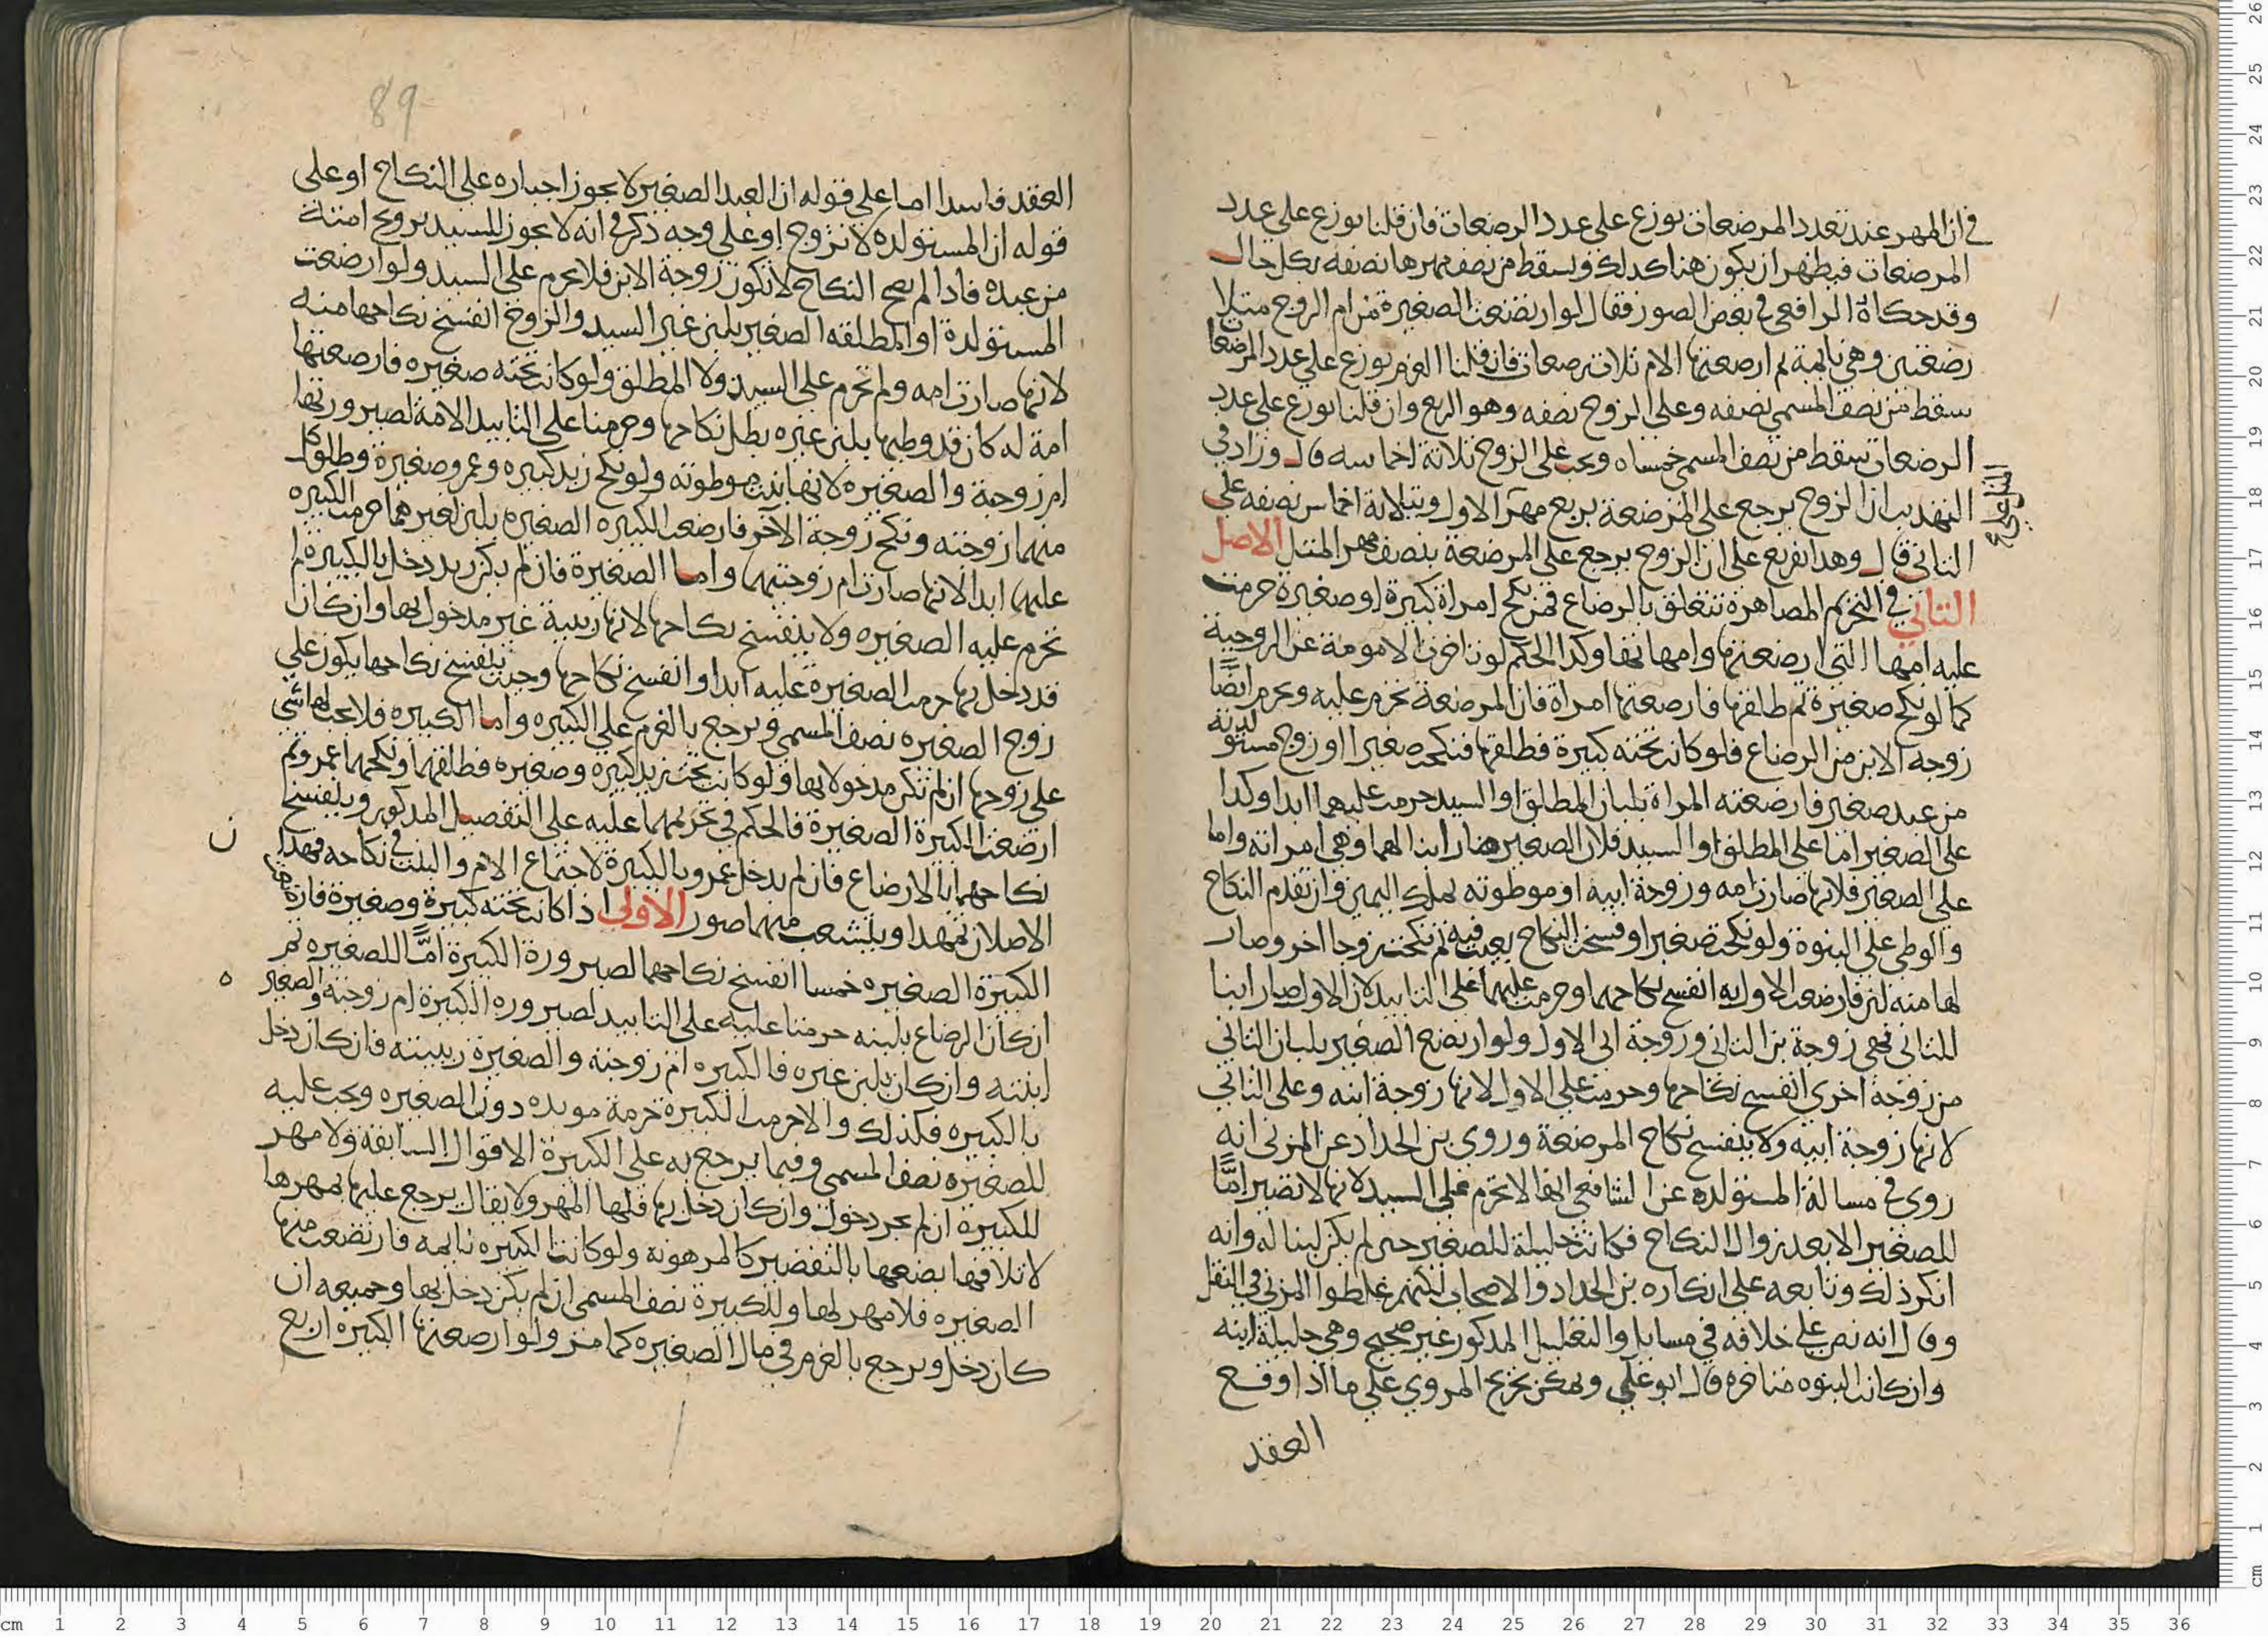 في ان المهر عند تعدد المرضعات يوزع على عدد الرضعات فان قلنا يوزع على عدد
المرضعات فيظهر ان يكون هنا كذلك ويسقط من نصف مهرها نصفه بكل حال
وقد حكاه الرافعي في بعض الصور فقال لو ارتضعت الصغيرة من ام الزوج مثلا
رضعتين وهي نايمة ثم ارضعتها الام ثلاث رضعات فان قلنا الغرم يوزع على عدد المرضعات
سقط من نصف المسمى نصفه وعلى الزوج نصفه وهو الربع وان قلنا يوزع على عدد
الرضعات سقط من نصف المسمى خمساه ويجب على الزوج ثلاثة اخماسه قال وزاد في
التهذيب ان الزوج يرجع على المرضعة بربع مهر الاول وبثلاثة اخماس نصفه على
الثاني قال وهذا تفريع على ان الزوج يرجع على المرضعة بنصف مهر المثل الاصل
الثاني في التحريم المصاهرة تتعلق بالرضاع فمن نكح امراة كبيرة او صغيرة حرمت
عليه امها التي ارضعتها وامهاتها وكذا الحكم لو تاخرت الامومة عن الزوجية
كما لو نكح صغيرة ثم طلقها فارضعتها امراة فان المرضعة تحرم عليه ويحرم ايضًا
زوجة الابن من الرضاع فلو كانت تحته كبيرة فطلقها فنكحت صغيرا او زوج مستولدته
من عبد صغير فارضعته المراة بلبان المطلق او السيد حرمت عليهما ابدا وكذا
على الصغير اما على المطلق او السيد فلان الصغير صار ابنا لهما وهي امراته واما
على الصغير فلانها صارت امه وزوجة ابيه او موطوته بملك اليمين وان تقدم النكاح
والوطي على البنوة ولو نكحت صغيرا وفسخت النكاح بعيب فيه ثم نكحت زوجا اخر وصار
لها منه لبن فارضعت الاول به انفسخ نكاحهما وحرمت عليهما على التابيد لان الاول صار ابنا
للثاني فهي زوجة بن الثاني وزوجة ابي الاول ولو ارتضع الصغير بلبان الثاني
من زوجة اخرى انفسخ نكاحها وحرمت على الاول لانها زوجة ابنه وعلى الثاني
لانها زوجة ابيه ولا ينفسخ نكاح المرضعة وروى بن الحداد عن المزني انه
روى في مسالة المستولدة عن الشافعي انها لا تحرم على السيد لانها لا تصير امًّا
للصغير الا بعد زوال النكاح فما كانت حليلة للصغير حين لم يكن لبنا له وانه
انكر ذلك وتابعه على انكاره بن الحداد والاصحاب لكنهم غلطوا المزني في النقل
وقال انه نص على خلافه في مسايل والتعليل المذكور غير صحيح وهي حليلة ابنه
وان كانت البنوه متاخره قال ابو علي ويمكن تخريج المروي على ما اذا وقع
العقد
89
العقد فاسدا اما على قوله ان العبد الصغير لا يجوز اجباره على النكاح او على
قوله ان المستولده لا تزوج او على وجه ذكر في انه لا يجوز للسيد تزويج امته
من عبده فاذا لم يصح النكاح لا تكون زوجة الابن فلا تحرم على السيد ولو ارضعت
المستولدة او المطلقه الصغير بلبن غير السيد والزوج انفسخ نكاحها منه
لانها صارت امه ولم تحرم على السيد ولا المطلق ولو كانت تحته صغيره فارضعتها
امة له كان قد وطيها بلبن غيره بطل نكاحها وحرمتا على التابيد الامة لصيرورتها
ام زوجة والصغيره لانها بنت موطوته ولو نكح زيد كبيره وعمرو صغيرة وطلق كل
منهما زوجته ونكح زوجة الاخر فارضعت الكبيره الصغيره بلبن لغيرهما حرمت الكبيره
عليهما ابدا لانها صارت ام زوجتيهما واما الصغيرة فان لم يكن زيد دخل بالكبيرة لم
تحرم عليه الصغيره ولا ينفسخ نكاحها لانها ربيبة غير مدخول بها وان كان
قد دخل بها حرمت الصغيرة عليه ابدا وانفسخ نكاحها وحيث ينفسخ نكاحها يكون على
زوج الصغيره نصف المسمى ويرجع بالغرم على الكبيره واما الكبيره فلا يجب لها شي
على زوجها ان لم تكن مدخولا بها ولو كانت تحت زيد كبيرة وصغيره فطلقهما ونكحهما عمرو ثم
ارضعت الكبيرة الصغيرة فالحكم في تحريمهما عليه على التفصيل المذكور وينفسخ
نكاحهما بالارضاع فان لم يدخل عمرو بالكبيرة لاجتماع الام والبنت في نكاحه فهذا
الاصلان تمهدا ويتشعب منهما صور الاولى اذا كانت تحته كبيرة وصغيرة فارضعت
الكبيرة الصغيره خمسا انفسخ نكاحهما لصيرورة الكبيرة امًّا للصغيره ثم
ان كان الرضاع بلبنه حرمتا عليه على التابيد لصيروره الكبيرة ام زوجته والصغير
ابنته وان كان بلبن غيره فالكبيره ام زوجته والصغيرة ربيبته فان كان دخل
بالكبيره فكذلك والا حرمت الكبيرة حرمة موبده دون الصغيره ويجب عليه
للصغيره نصف المسمى وفيما يرجع به على الكبيرة الاقوال السابقة ولا مهر
للكبيرة ان لم يجر دخول وان كان دخل بها فلها المهر ولا يقال يرجع عليها بمهرها
لاتلافها بضعها بالتفضير كالمرهونة ولو كانت الكبيره نايمه فارتضعت منها
الصغيره فلا مهر لها وللكبيرة نصف المسمى ان لم يكن دخل بها وجميعه ان
كان دخل ويرجع بالغرم في مال الصغيره كما مر ولو ارضعتها الكبيره اربع